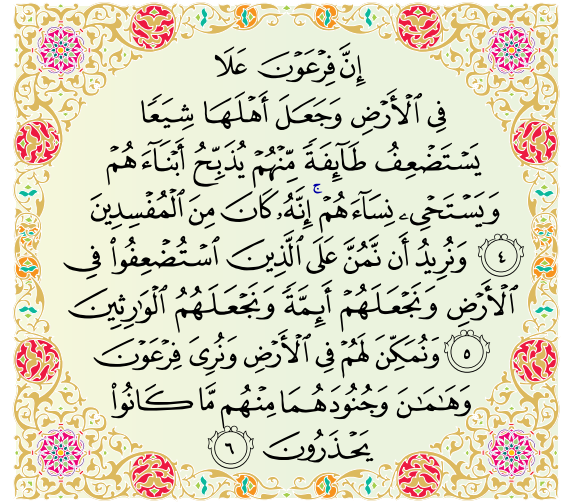 إِنَّ فِرْعَوْنَ عَلَا
فِي ٱلْأَرْضِ وَجَعَلَ أَهْلَهَا شِيَعًا
يَسْتَضْعِفُ طَآئِفَةً مِّنْهُمْ يُذَبِّحُ أَبْنَآءَهُمْ
وَيَسْتَحْىِۦ نِسَآءَهُمْ ۚ إِنَّهُۥ كَانَ مِنَ ٱلْمُفْسِدِينَ
٤ وَنُرِيدُ أَن نَّمُنَّ عَلَى ٱلَّذِينَ ٱسْتُضْعِفُوا۟ فِي
ٱلْأَرْضِ وَنَجْعَلَهُمْ أَئِمَّةً وَنَجْعَلَهُمُ ٱلْوَٰرِثِينَ
٥ وَنُمَكِّنَ لَهُمْ فِي ٱلْأَرْضِ وَنُرِىَ فِرْعَوْنَ
وَهَٰمَٰنَ وَجُنُودَهُمَا مِنْهُم مَّا كَانُوا۟
يَحْذَرُونَ ٦